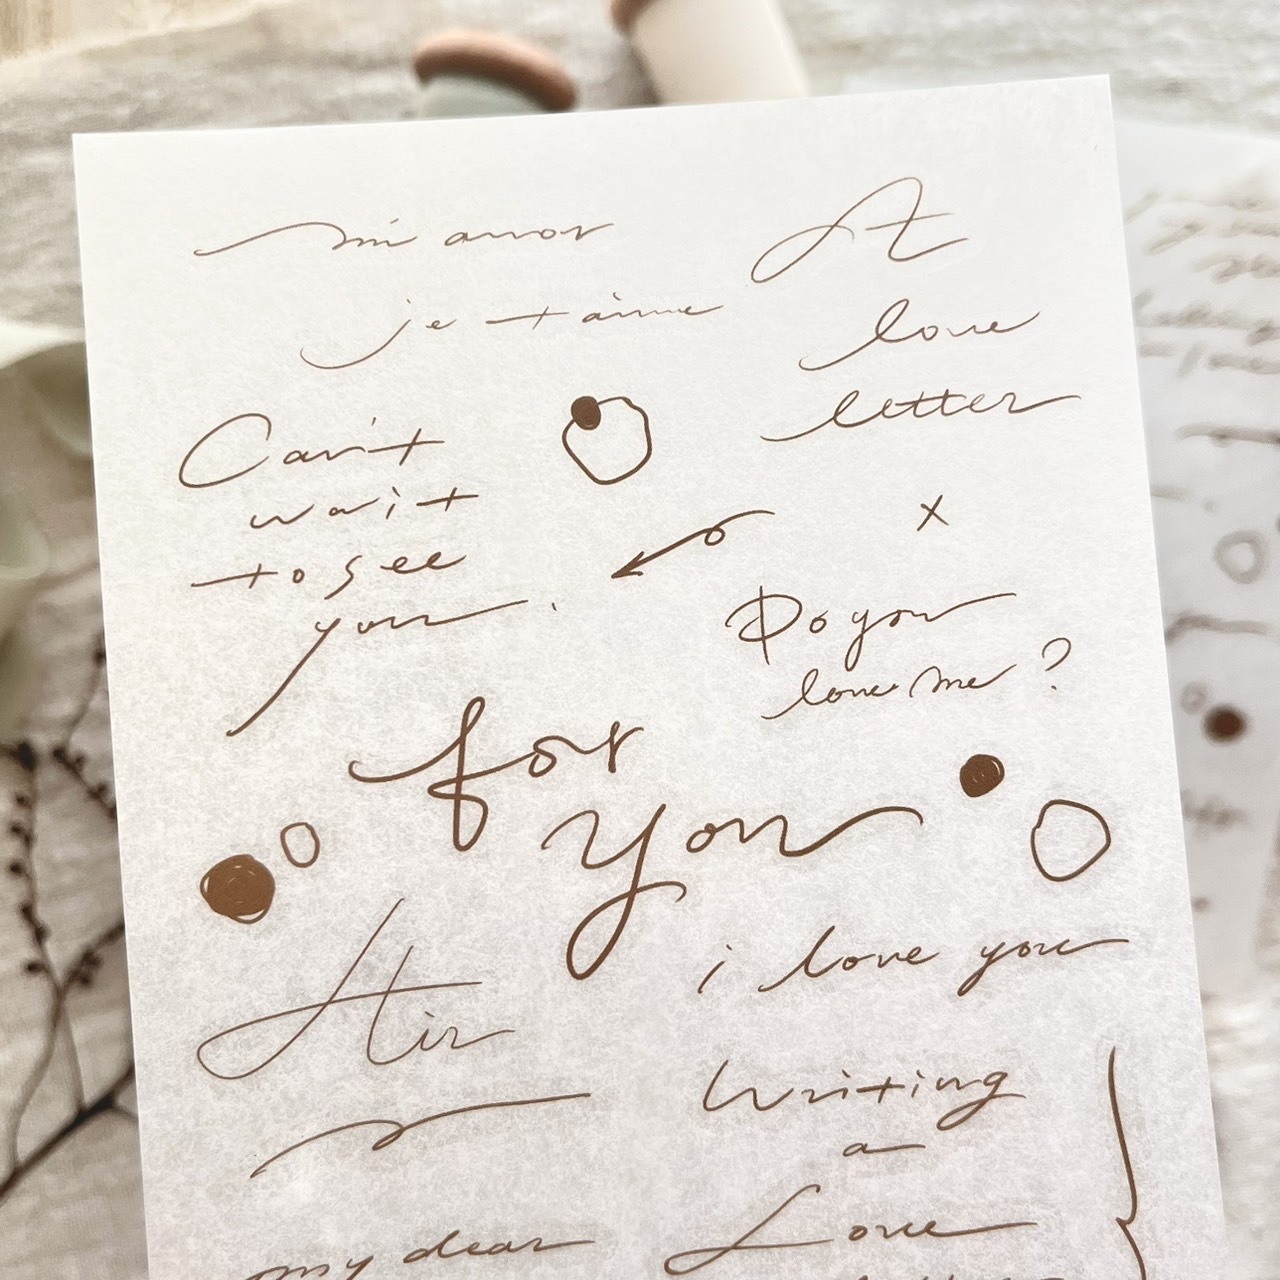 mi amor
je t'aime
A
love
letter
Can't
wait
to see
you.
x
Do you
love me?
for
you
Air
i love you
Writing
a
Love
my dear